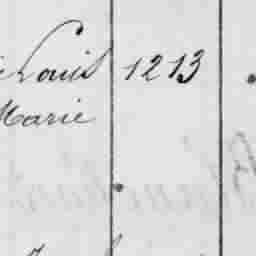 Louis 1213
Marie